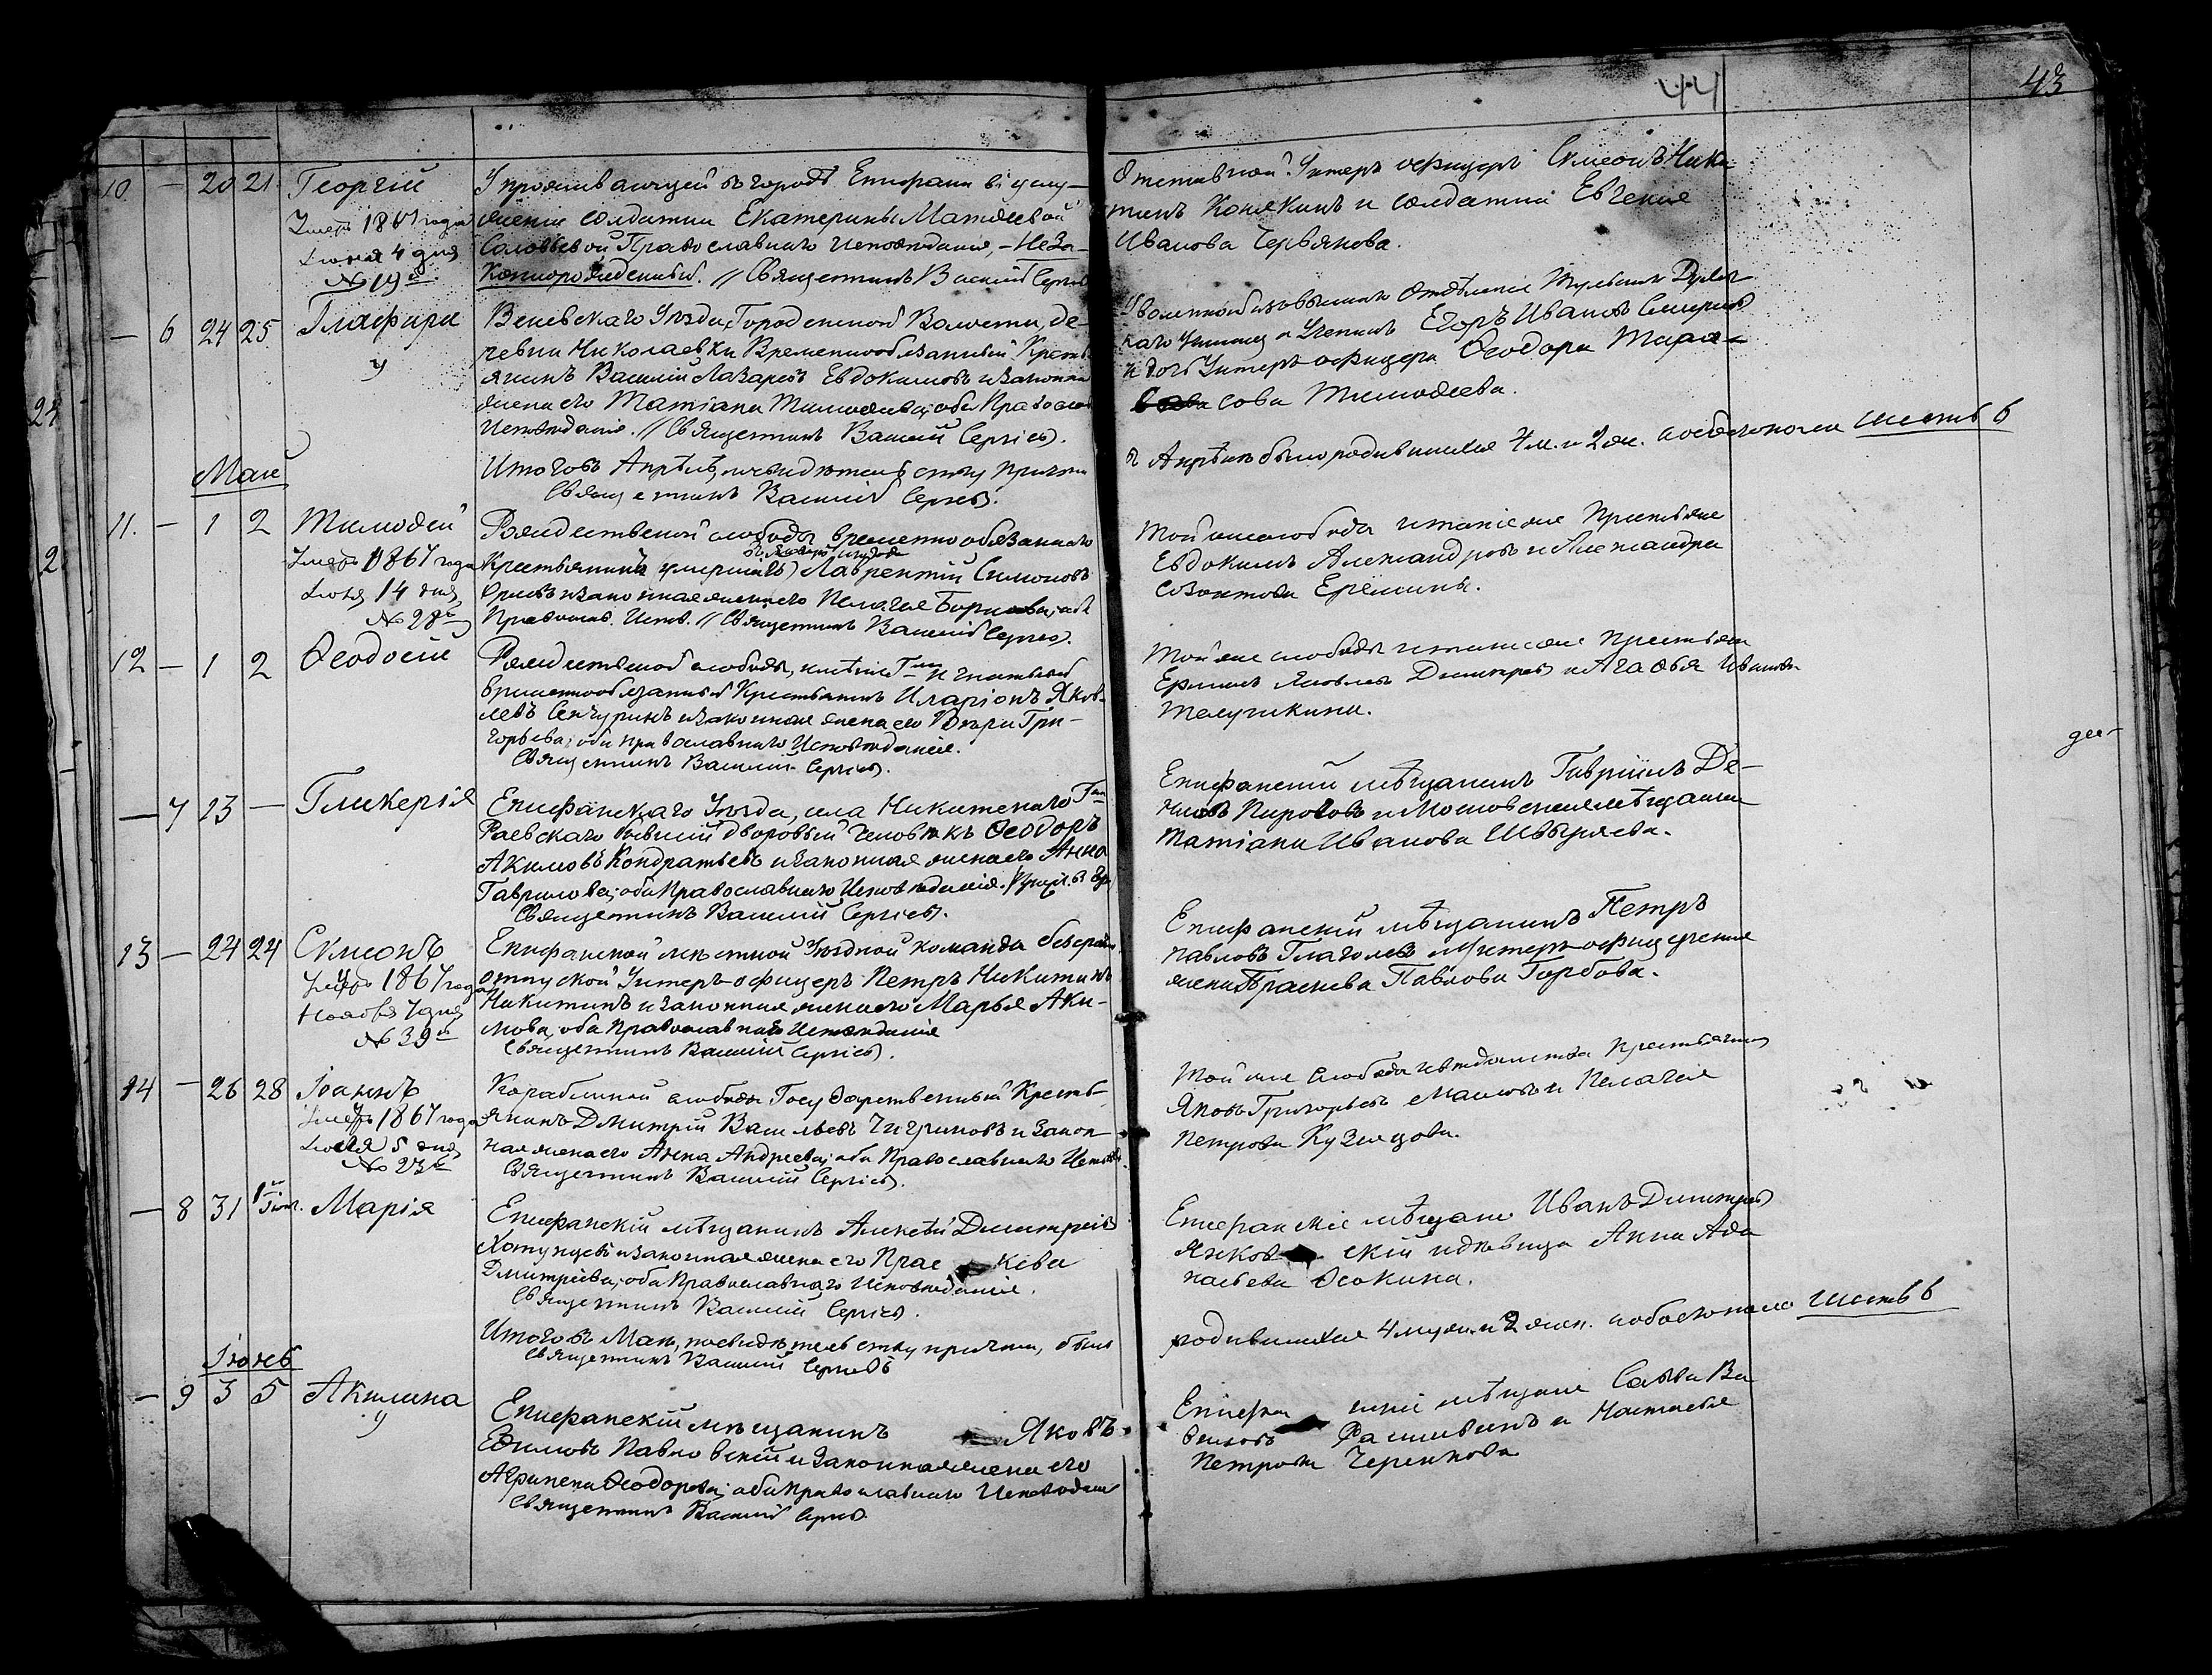 44
43
10 — 20 21 Георгій
Умеръ 1867 года
Іюня 4 дня
№ 19й
У проживающей въ городѣ Епифани въ услу-
женіи солдатки Екатерины Матѳеевой
Соловьевой Православнаго исповѣданія, – Неза-
коннорожденный. // Священникъ Василій Сергіевъ
Отставной Унтеръ офицеръ Симеонъ Ники
тинъ Конякинъ и солдатка Евгенія
Иванова Червякова.
— 6 24 25 Глафира
у
Веневскаго Уѣзда, Городенской Волости, де-
ревни Николаевки Временнообязанный Кресть
янинъ Василій Лазаревъ Евдокимовъ и законная
жена его Татіана Тимоѳеева; оба Православ
Исповѣданія. // Священникъ Василій Сергіевъ.
Егоръ Ивановъ
и дочь Унтеръ-офицера Ѳеодора Тара-
сова Тимоѳеева.
Итого въ Апрѣлѣ, по свидѣтельству причта
Священникъ Василій Сергіевъ.
въ Апрѣлѣ было родившихся 4 м. и 2 ж. обоего пола шесть 6
Май
11. — 1 2 Тимоѳей
Умеръ 1867 года
Іюля 14 дня
№ 28й
Рождественской слободы временнообязаннаго
Крестьянинъ (умершій) Лаврентій Симоновъ
и законная жена его Пелагея Борисова; оба
Православ. Испов. // Священникъ Василій Сергіевъ.
Той же слободы и имѣнія же Крестьяне
Евдокимъ Александровъ и Александра
Созонтова Еремины.
12 — 1 2 Ѳеодосій
Рождественской слободы, имѣнія Гжи Игнатьевой
временнообязанный Крестьянинъ Иларіонъ Яков-
левъ Сенчуринъ и законная жена его Вѣра Гри-
горьева; оба православнаго Исповѣданія.
Священникъ Василій Сергіевъ.
Той же слободы и имѣнія же Крестьяне
Яковлевъ Димитріевъ и Агаѳья Иванова
Телушкины.
— 7 13 — Гликерія
Епифанскаго Уѣзда, села Никитскаго Гна
Раевскаго бывшій дворовый человѣкъ Ѳеодоръ
Акимовъ Кондратьевъ и законная жена его Анна
Гаврилова; оба Православнаго Исповѣданія.
Священникъ Василій Сергіевъ.
Епифанскій мѣщанинъ Гавріилъ Де-
нисовъ Пироговъ и Московская мѣщанка
Татіана Иванова Швыряева.
13 — 24 24 Симеонъ
Умеръ 1867 года
Ноября 7 дня
№ 39й
Епифанской мѣстной Уѣздной команды безсроч.
отпускной Унтеръ-офицеръ Петръ Никитинъ
Никитинъ и законная жена его Марья Аки-
мова, оба Православнаго Исповѣданія
Священникъ Василій Сергіевъ.
Епифанскій мѣщанинъ Петръ
Павловъ Глаголевъ и Унтеръ-офицерская
жена Праскева Павлова Горбова.
14 — 26 28 Іоаннъ
Умеръ 1867 года
Іюля 5 дня
№ 23й
Корабликой слободы Государственный Кресть-
янинъ Дмитрій Васильевъ Чигриновъ и закон-
ная жена его Анна Андреева; оба Православнаго Исповѣд.
Священникъ Василій Сергіевъ.
Той же слободы и вѣдомства Крестьянинъ
Яковъ Григорьевъ Масловъ и Пелагея
Петрова Кузнецова.
— 8 31 1го Іюн. Марія
Епифанскій мѣщанинъ Алексѣй Димитріевъ
Хотунцевъ и законная жена его Прас кева
Дмитріева; оба Православнаго Исповѣданія.
Священникъ Василій Сергіевъ.
Епифанскіе мѣщане Иванъ Димитріевъ
Языков скій и дѣвица Анна Аѳа
насьева Осокина.
Итого въ Маѣ, по свидѣтельству причта, было
Священникъ Василій Сергіевъ
родившихся 4 муж. и 2 жен. обоего пола шесть 6
Іюнь
— 9 3 5 Акилина
у
Епифанскій мѣщанинъ Яковъ
Ефимовъ Павловскій и законная жена его
Агрипена Ѳеодорова; оба православнаго Исповѣдан
Священникъ Василій Сергіевъ
Епифан скіе мѣщане Савва Ва
сильевъ и Настасья
Петрова Черникова